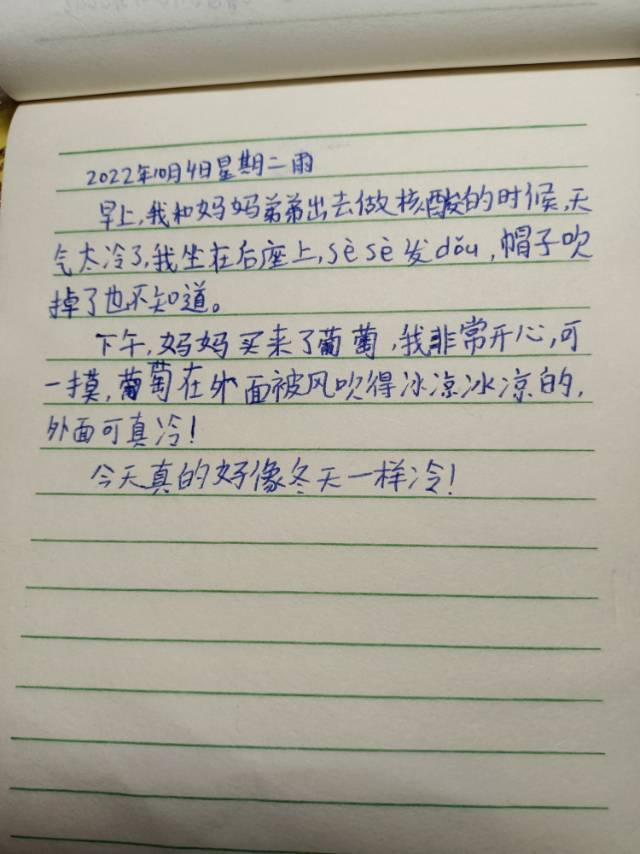 2022年10月4日星期二雨
早上,我和妈妈弟弟出去做核酸的时候,天
气太冷了,我坐在后座上,sè sè发dǒu,帽子吹
掉了也不知道。
下午,妈妈买来了葡萄,我非常开心,可
一摸,葡萄在外面被风吹得冰凉冰凉的,
外面可真冷!
今天真的好像冬天一样冷!